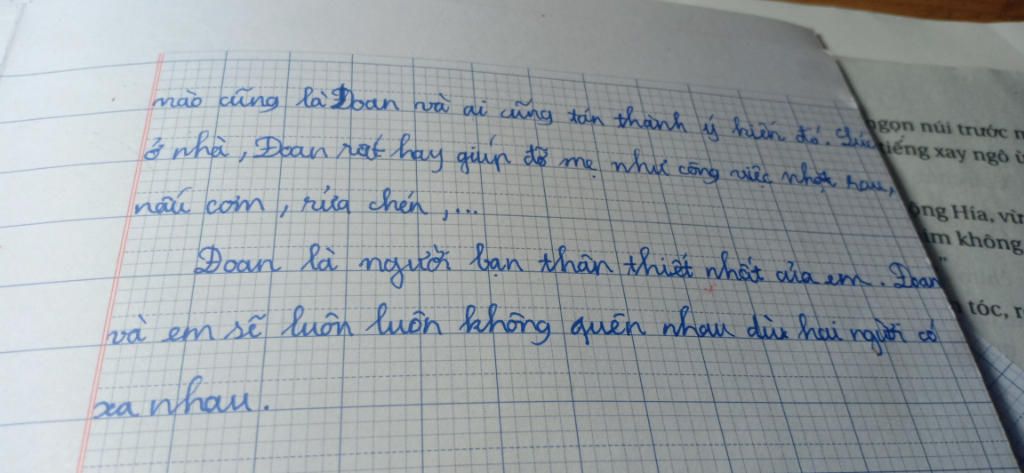 nào cũng là Đoan và ai cũng tán thành ý kiến đó. Lúc
ở nhà, Đoan rất hay giúp đỡ mẹ như công việc nhặt rau,
nấu cơm, rửa chén,...
Đoan là người bạn thân thiết nhất của em. Đoan
và em sẽ luôn luôn không quên nhau dù hai người có
xa nhau.
ngọn núi trước
tiếng xay ngô
ng Hía, vừ
m không
tóc, r